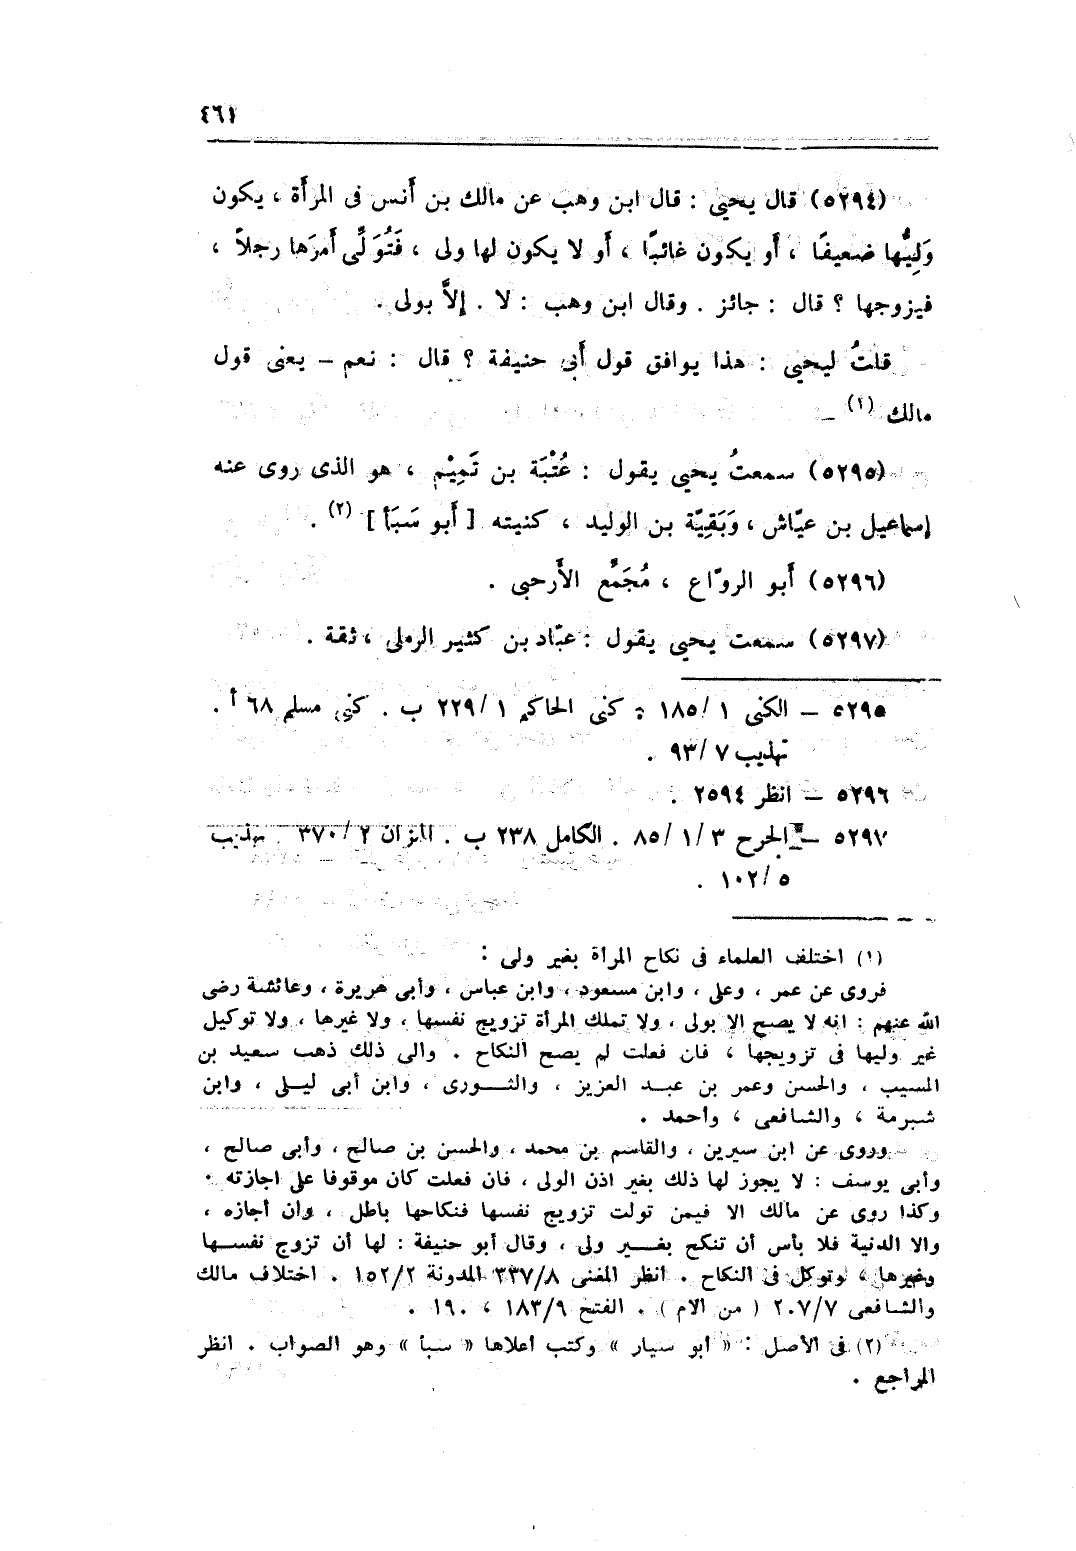 ٤٦١
(٥٢٩٤) قال يحيى : قال ابن وهب عن مالك بن أنس فى المرأة ، يكون
وَليُّها ضعيفًا ، أو يكون غائبًا ، أو لا يكون لها ولى ، فَتُوَلَّى أمرَها رجلاً ،
فيزوجها ؟ قال : جائز . وقال ابن وهب : لا . إلاَّ بولى .
قلتُ ليحيى : هذا يوافق قول أبى حنيفة ؟ قال : نعم – يعنى قول
مالك (١) –
(٥٢٩٥) سمعتُ يحيى يقول : عُتْبَة بن تَمِيْم ، هو الذى روى عنه
إسماعيل بن عيّاش ، وَبَقِيّة بن الوليد ، كنيته [ أبو سَبَأ ] (٢) .
(٥٢٩٦) أبو الروّاع ، مُجَمَّع الأرحبى .
(٥٢٩٧) سمعت يحيى يقول : عبّاد بن كثير الرملى ، ثقة .
٥٢٩٥ – الكنى ١/ ١٨٥ ؛ كنى الحاكم ١/ ٢٢٩ ب . كنى مسلم ٦٨ أ .
تهذيب ٧/ ٩٣ .
٥٢٩٦ – انظر ٢٥٩٤ .
٥٢٩٧ – الجرح ٣/ ١/ ٨٥ . الكامل ٢٣٨ ب . الميزان ٢/ ٣٧٠ . تهذيب
٥/ ١٠٢ .
(١) اختلف العلماء فى نكاح المرأة بغير ولى :
فروى عن عمر ، وعلى ، وابن مسعود ، وابن عباس ، وأبى هريرة ، وعائشة رضى
الله عنهم : انه لا يصح الا بولى ، ولا تملك المرأة تزويج نفسها ، ولا غيرها ، ولا توكيل
غير وليها فى تزويجها ، فان فعلت لم يصح النكاح . والى ذلك ذهب سعيد بن
المسيب ، والحسن وعمر بن عبد العزيز ، والثورى ، وابن أبى ليلى ، وابن
شبرمة ، والشافعى ، وأحمد .
وروى عن ابن سيرين ، والقاسم بن محمد ، والحسن بن صالح ، وأبى صالح ،
وأبى يوسف : لا يجوز لها ذلك بغير اذن الولى ، فان فعلت كان موقوفا على اجازته .
وكذا روى عن مالك الا فيمن تولت تزويج نفسها فنكاحها باطل ، وان أجازه ،
والا الدنية فلا بأس أن تنكح بغير ولى ، وقال أبو حنيفة : لها أن تزوج نفسها
وغيرها ، وتوكل فى النكاح . انظر المغنى ٣٣٧/٨ المدونة ١٥٢/٢ . اختلاف مالك
والشافعى ٢٠٧/٧ ( من الام ) . الفتح ١٨٣/٩ ، ١٩٠ .
(٢) فى الأصل : « أبو سيار » وكتب أعلاها « سبأ » وهو الصواب . انظر
المراجع .